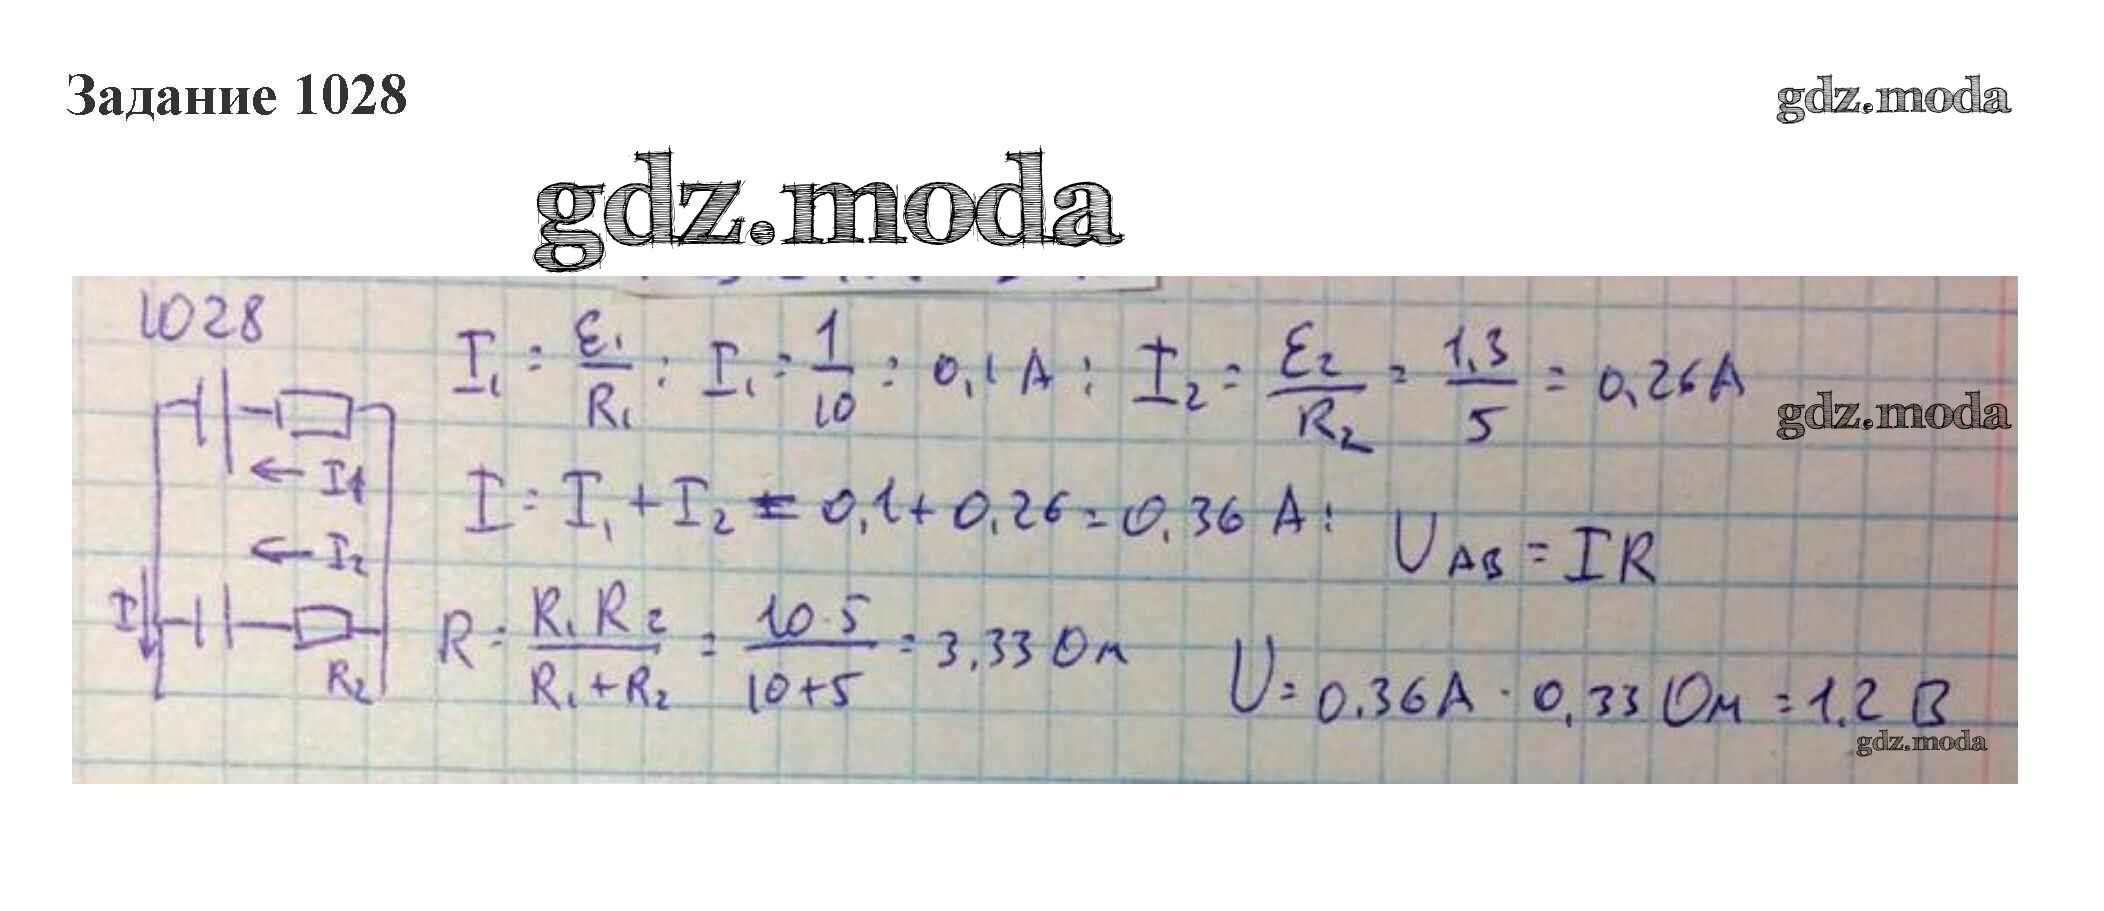 Задание 1028
gdz.moda
gdz.moda
1028
I₁ = ε₁/R₁ ; I₁ = 1/10 = 0,1 A ; I₂ = ε₂/R₂ = 1,3/5 = 0,26 A
gdz.moda
I = I₁ + I₂ = 0,1 + 0,26 = 0,36 A ;
U_AB = IR
R = R₁R₂/(R₁+R₂) = 10·5/(10+5) = 3,33 Ом
U = 0,36 A · 0,33 Ом = 1,2 В
gdz.moda
I1
I₂
I
R₂